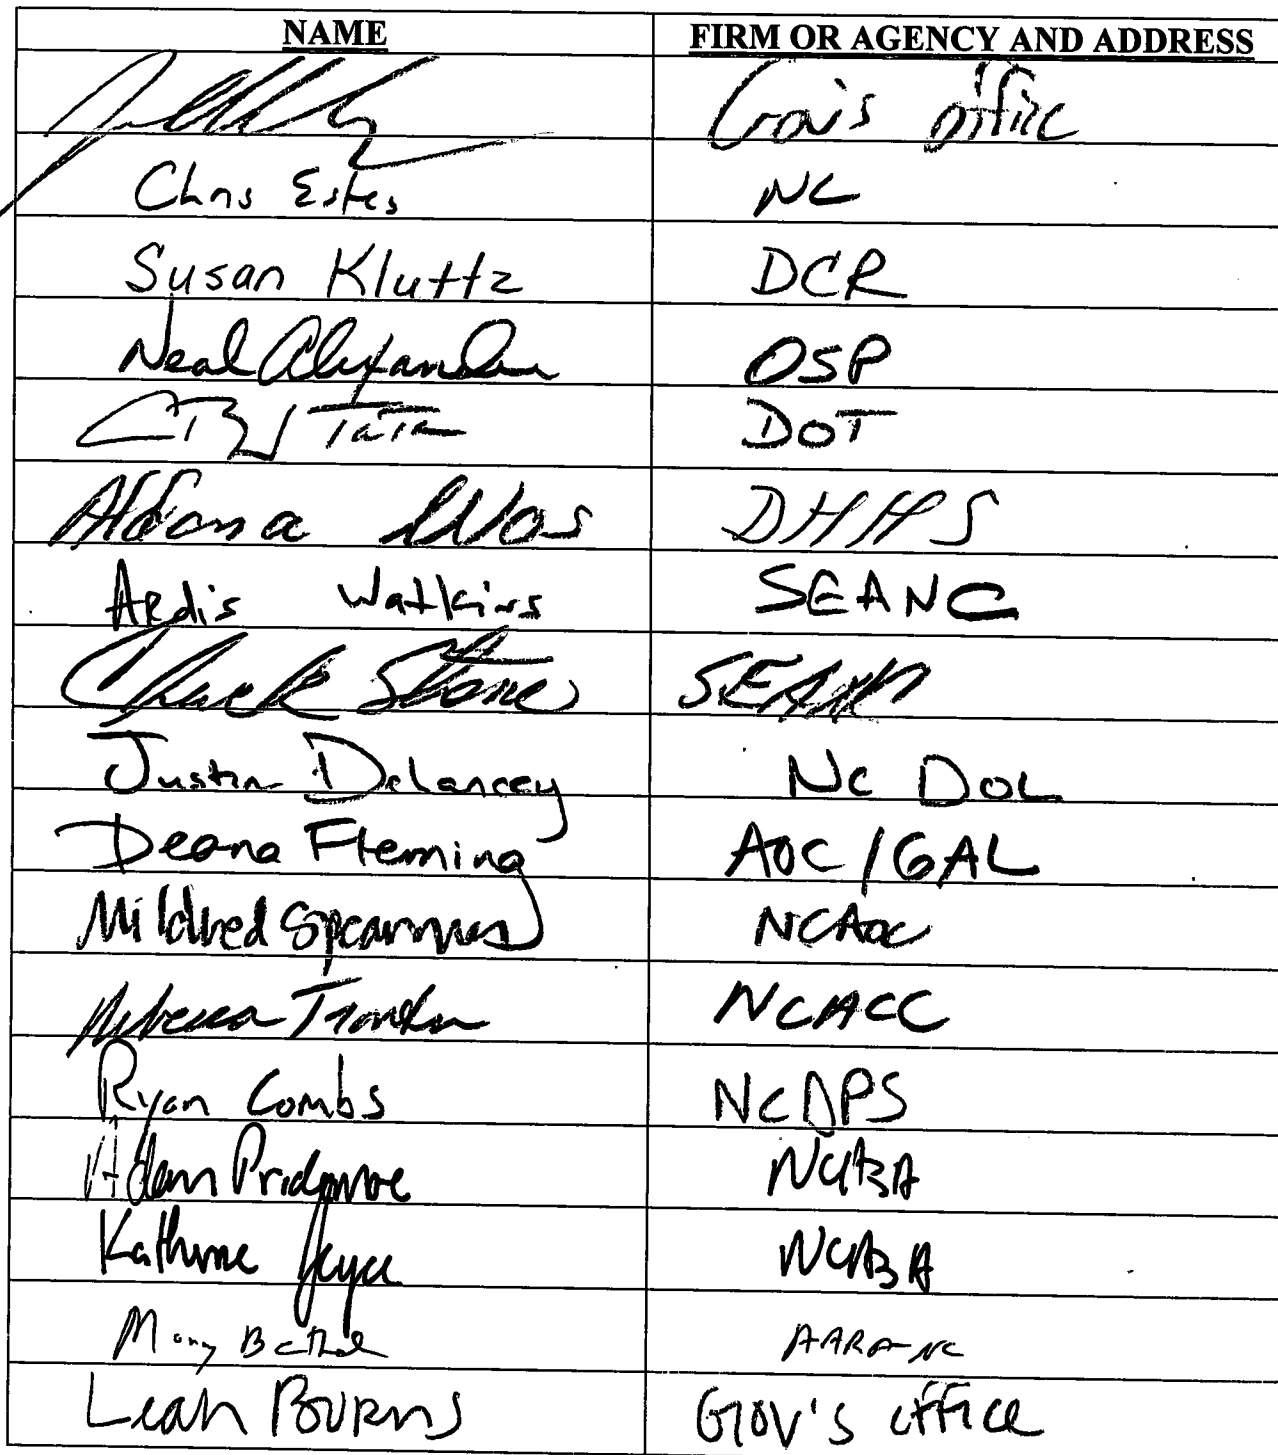 NAME FIRM OR AGENCY AND ADDRESS
Gov's office
Chris Estes NC
Susan Kluttz DCR
Neal Alexander OSP
Tata DOT
Aldona Wos DHHS
Ardis Watkins SEANC
Chuck Stone SEANC
Justin Delancey NC DOL
Deana Fleming AOC/GAL
Mildred Spearman NCAOC
Rebecca Troutman NCACC
Ryan Combs NCDPS
Adam Pridemore NCASA
Katherine Joyce NCASA
Mary Bethel AARP-NC
Leah Burns Gov's office